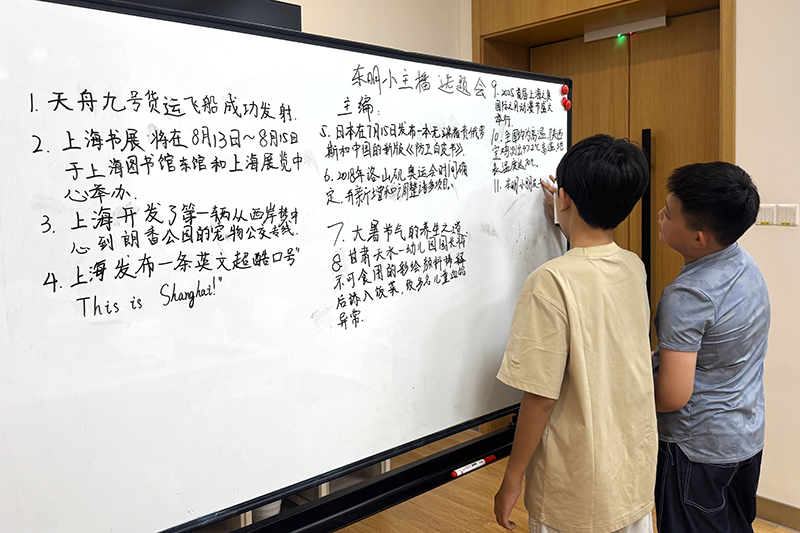 东明小主播 选题会
主编:
1. 天舟九号货运飞船成功发射.
2. 上海书展 将在8月13日～8月15日
于上海图书馆东馆和上海展览中
心举办.
3. 上海开发了第一辆从西岸梦中
心到朗香公园的宠物公交专线.
4. 上海发布一条英文超酷口号"
This is Shanghai!"
5. 日本在7月15日发布一本无
斯和中国的新版《防卫白皮书》
6. 2018年洛山矶奥运会时间确
定,并新增和调整诸多项目.
7. 大暑节气的养生之道.
8. 甘肃天水一幼儿园园长将
不可食用的彩绘颜料稀释
后添入饭菜,致多名儿童血铅
异常.
9. 2025首届上海
国际 动漫节盛大
举行.
10. 全国
11. 东明小